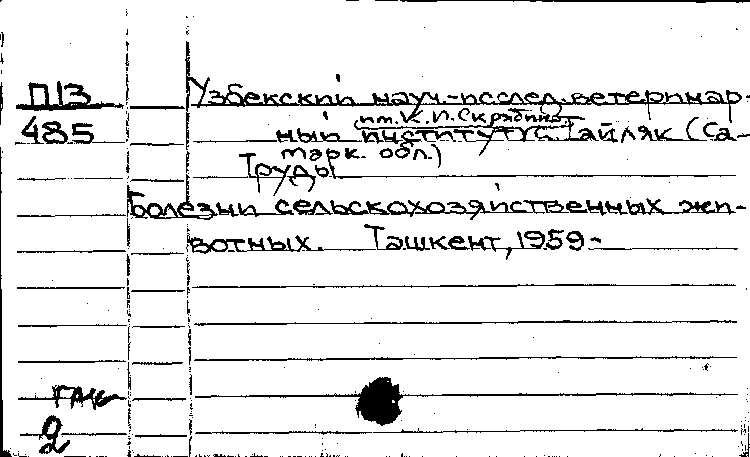 П13
485
Узбекский науч.-исслед. ветеринар-
(им. К. И. Скрябина)
ный институт с. Тайляк (Са-
марк. обл.)
Труды
Болезни сельскохозяйственных жи-
вотных. Ташкент, 1959-
2